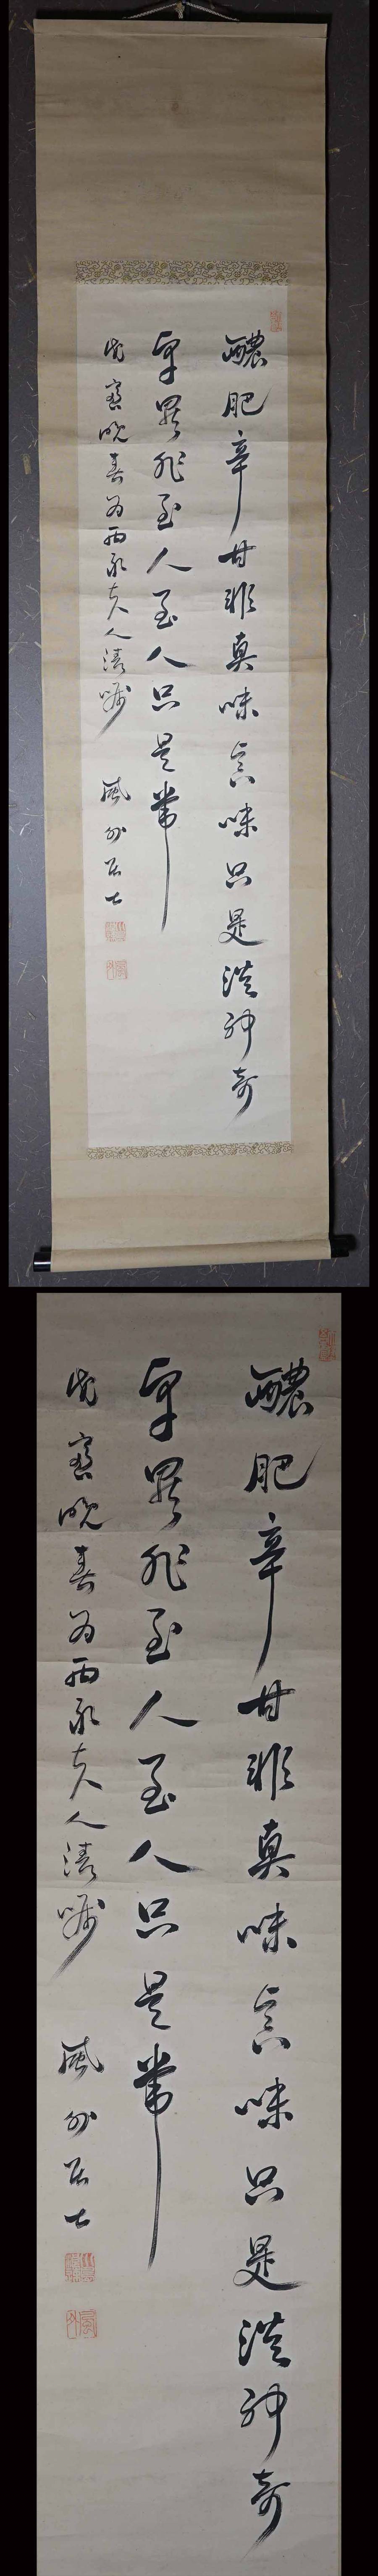 醲肥辛甘非真味真味只是淡神奇
卓異非至人至人只是常
戊寅晚春為西永夫人清嘱 風外居士
醲肥辛甘非真味真味只是淡神奇
卓異非至人至人只是常
戊寅晚春為西永夫人清嘱 風外居士